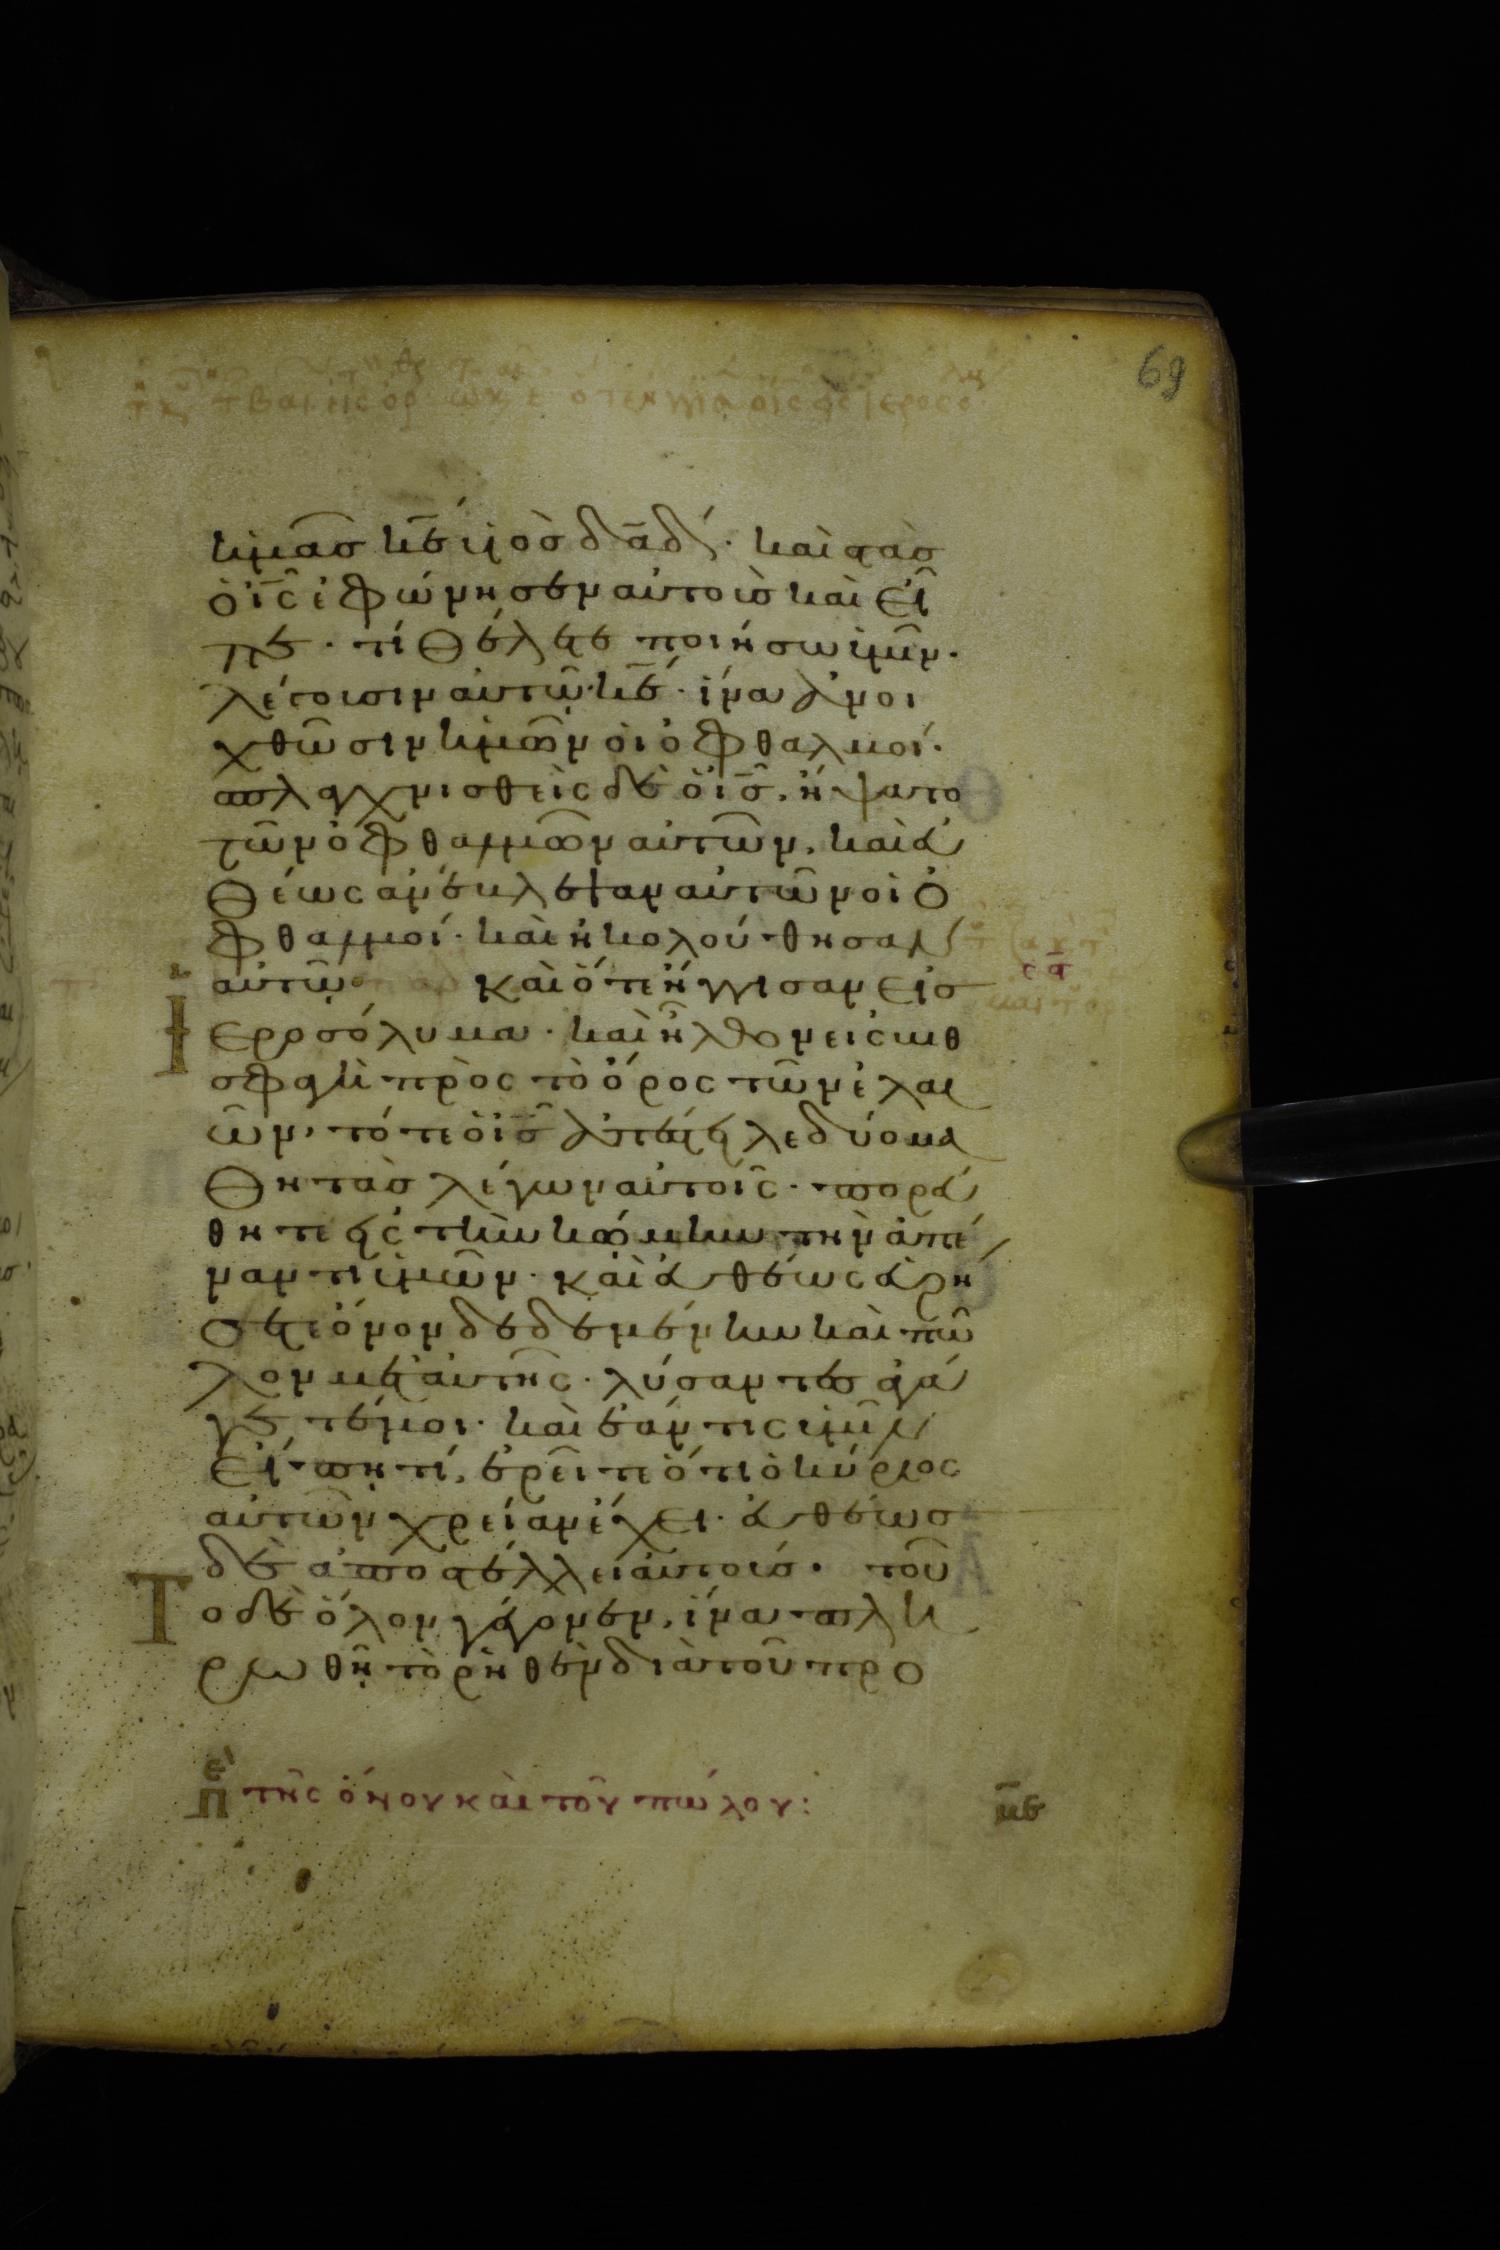 69
ἡμᾶσ κ̅ε̅ υἱὸσ δα̅δ̅· καὶ στὰσ
ὁ ι̅ς̅ ἐφώνησεν αὐτοὺσ καὶ εἶ
πε· τί θέλετε ποιήσω ὑμῖν·
λέγουσιν αὐτῶ· κ̅ε̅· ἵνα ἀνοι
χθῶσιν ἡμῶν ὁι ὀφθαλμοί·
σπλαγχνισθεὶς δὲ ὁ ι̅σ̅, ἥψατο
τῶν ὀφθαλμῶν αὐτῶν, καὶ εὐ
θέως ἀνέβλεψαν αὐτῶν οἱ ὀ
φθαλμοί· καὶ ἠκολούθησαν
αὐτῶ καὶ ὅτε ἤγγισαν εἰσ
Ιεροσόλυμα· καὶ ἦλθον εἰς βηθ
σφαγὴ πρὸς τὸ ὄρος τῶν ἐλαι
ῶν, τότε ὁ ι̅σ̅ ἀπέστειλε δύο μα
θητὰσ λέγων αὐτοῖς· πορεύ
θητε εἰς τὴν κώμην τὴν ἀπέ
ναντι ὑμῶν· καὶ εὐθέως εὑρή
σετε ὄνον δεδεμένην καὶ πῶ
λον μετ᾽ αὐτῆς· λύσαντεσ ἀγά
γετέ μοι· καὶ ἐάν τις ὑμῖν
εἴπη τί, ἐρεῖτε ὅτι ὁ κύριος
αὐτῶν χρείαν ἔχει· εὐθέωσ
δὲ ἀποστέλλει αὐτούσ· τοῦ
Το δὲ ὅλον γέγονεν, ἵνα πλη
ρωθῆ τὸ ῥηθὲν διὰ τοῦ προ
πε τῆς ὄνου καὶ τοῦ πώλου: μ̅ε̅